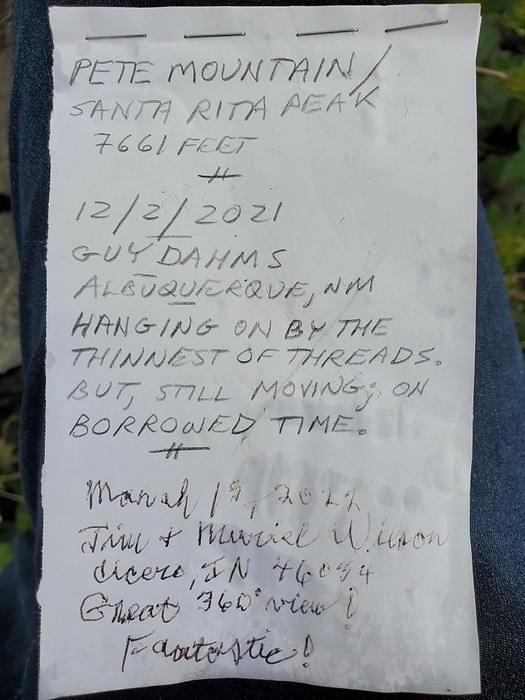 PETE MOUNTAIN/
SANTA RITA PEAK
7661 FEET
12/2/2021
GUY DAHMS
ALBUQUERQUE, NM
HANGING ON BY THE
THINNEST OF THREADS.
BUT, STILL MOVING; ON
BORROWED TIME.
March 13, 2022
Jim + Muriel Wilson
Cicero, IN 46034
Great 360° view!
Fantastic!